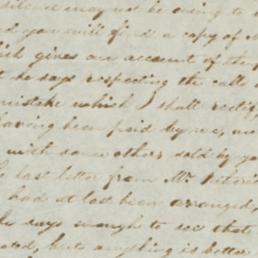 silence may not be owing to
d you will find a copy of
ich gives an account of the
t he says respecting the calls
mistake which I shall rectify
having been paid by me, an
with some others sold by yo
he last letter from Mr.
had at last been arranged,
he says enough to see that
ted, but anything is better